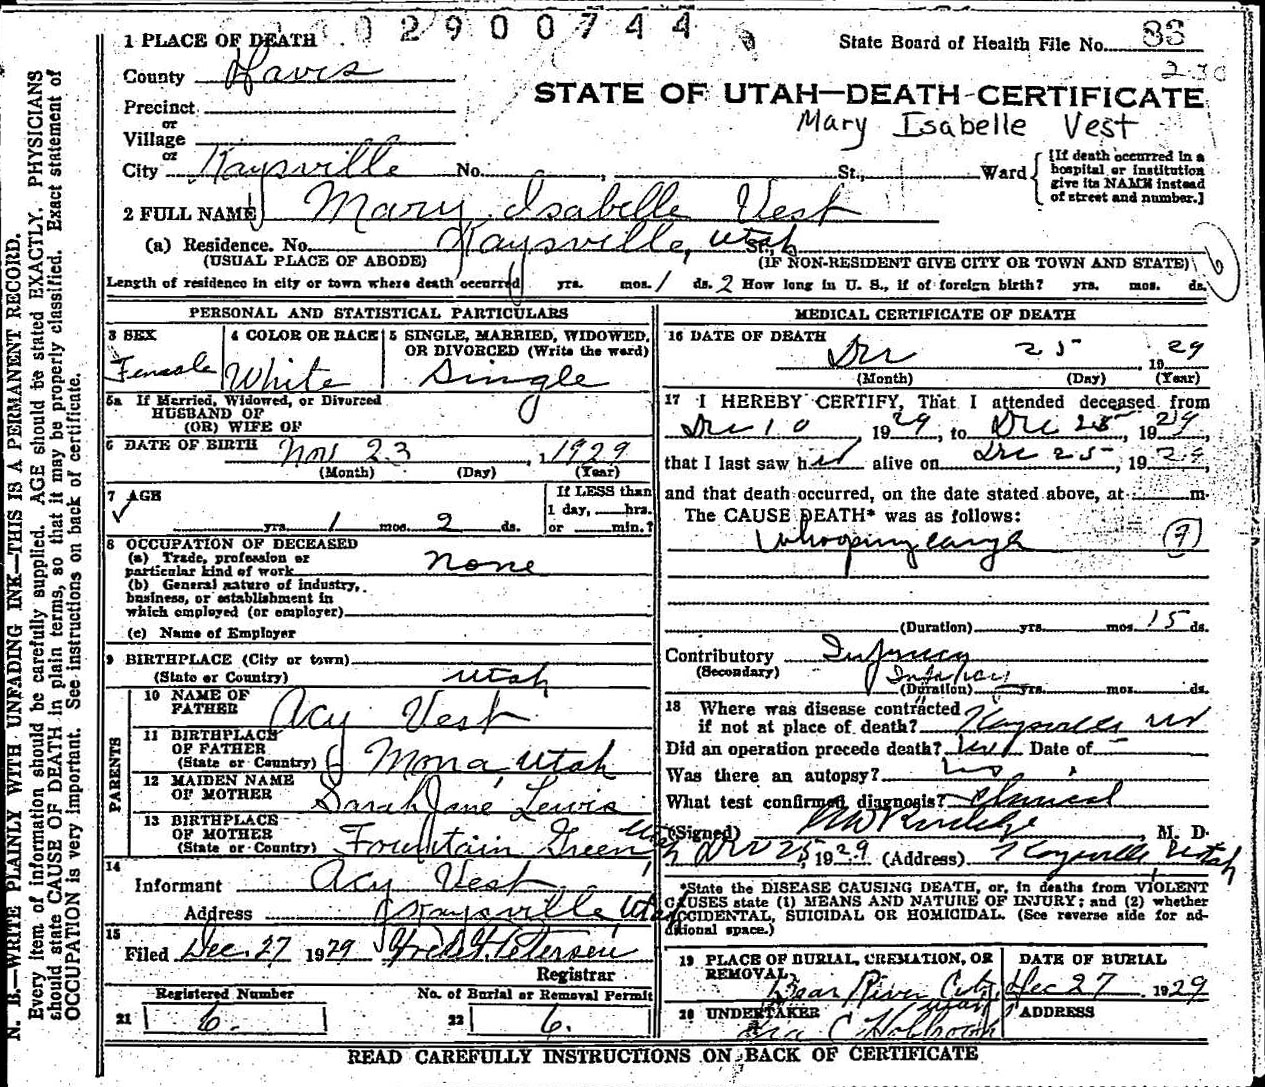 02900744
1 PLACE OF DEATH
State Board of Health File No. 83
230
County Davis
STATE OF UTAH—DEATH CERTIFICATE
Precinct
or
Village
or
Mary Isabelle Vest
City Kaysville No. , St., Ward
[If death occurred in a hospital or institution give its NAME instead of street and number.]
2 FULL NAME Mary Isabelle Vest
(a) Residence. No. Kaysville, Utah St.
(USUAL PLACE OF ABODE) (IF NON-RESIDENT GIVE CITY OR TOWN AND STATE)
Length of residence in city or town where death occurred yrs. mos. 1 ds. 2 How long in U. S., if of foreign birth? yrs. mos. ds.
PERSONAL AND STATISTICAL PARTICULARS
3 SEX Female
4 COLOR OR RACE White
5 SINGLE, MARRIED, WIDOWED, OR DIVORCED (Write the word) Single
5a If Married, Widowed, or Divorced
HUSBAND OF
(OR) WIFE OF
6 DATE OF BIRTH Nov 23, 1929
(Month) (Day) (Year)
7 AGE
If LESS than
1 day, hrs.
yrs. 1 mos. 2 ds. or min.?
8 OCCUPATION OF DECEASED
(a) Trade, profession or
particular kind of work none
(b) General nature of industry,
business, or establishment in
which employed (or employer)
(c) Name of Employer
9 BIRTHPLACE (City or town)
(State or Country) Utah
PARENTS
10 NAME OF
FATHER Acy Vest
11 BIRTHPLACE
OF FATHER
(State or Country) Mona, Utah
12 MAIDEN NAME
OF MOTHER Sarah Jane Lewis
13 BIRTHPLACE
OF MOTHER
(State or Country) Fountain Green Utah
14
Informant Acy Vest
Address Kaysville Utah
15
Filed Dec. 27 1929 Petersen
Registrar
Registered Number
21 6.
No. of Burial or Removal Permit
22 6.
MEDICAL CERTIFICATE OF DEATH
16 DATE OF DEATH
Dec 25, 1929
(Month) (Day) (Year)
17 I HEREBY CERTIFY, That I attended deceased from
Dec 10, 1929, to Dec 25, 1929,
that I last saw her alive on Dec 25, 1929,
and that death occurred, on the date stated above, at m.
The CAUSE DEATH* was as follows:
Whooping cough
(Duration) yrs. mos. 15 ds.
Contributory Infancy
(Secondary) Infancy
(Duration) yrs. mos. ds.
18 Where was disease contracted
if not at place of death? Kaysville
Did an operation precede death? Date of
Was there an autopsy? no
What test confirmed diagnosis? Clinical
(Signed) M. D.
Dec 25, 1929 (Address) Kaysville Utah
*State the DISEASE CAUSING DEATH, or, in deaths from VIOLENT
CAUSES state (1) MEANS AND NATURE OF INJURY; and (2) whether
ACCIDENTAL, SUICIDAL OR HOMICIDAL. (See reverse side for ad-
ditional space.)
19 PLACE OF BURIAL, CREMATION, OR
REMOVAL
Bear River City, Utah
DATE OF BURIAL
Dec 27 1929
20 UNDERTAKER
ADDRESS
READ CAREFULLY INSTRUCTIONS ON BACK OF CERTIFICATE
N. B.—WRITE PLAINLY WITH UNFADING INK—THIS IS A PERMANENT RECORD.
Every item of information should be carefully supplied. AGE should be stated EXACTLY. PHYSICIANS
should state CAUSE OF DEATH in plain terms, so that it may be properly classified. Exact statement of
OCCUPATION is very important. See instructions on back of certificate.